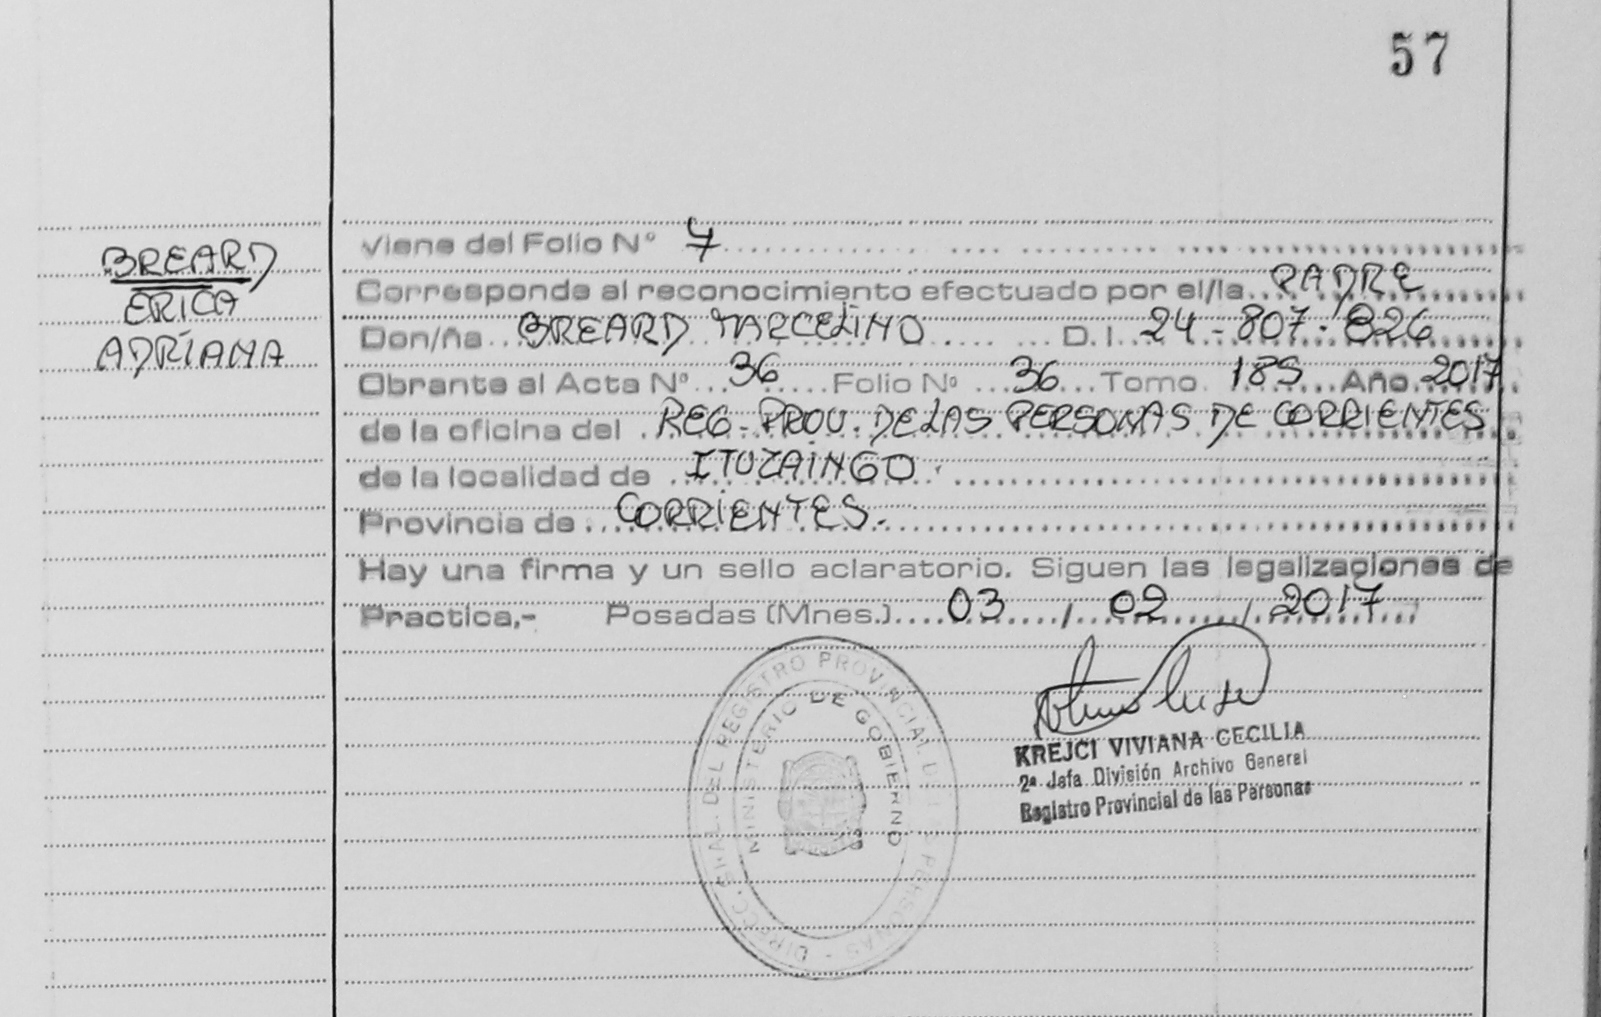 57
BREARD
ERICA
ADRIANA
Viene del Folio Nº 7
Corresponde al reconocimiento efectuado por el/la PADRE
Don/ña BREARD MARCELINO D.I. 24-807-826
Obrante al Acta Nº 36 Folio Nº 36 Tomo 18S Año 2017
de la oficina del REG. PROV. DE LAS PERSONAS DE CORRIENTES
de la localidad de ITUZAINGO.
Provincia de CORRIENTES.
Hay una firma y un sello aclaratorio. Siguen las legalizaciones de
Practica,- Posadas (Mnes.) 03 / 02 / 2017
DIRECC. GRAL. DEL REGISTRO PROVINCIAL DE LAS PERSONAS -
MINISTERIO DE GOBIERNO
KREJCI VIVIANA CECILIA
2ª Jefa División Archivo General
Registro Provincial de las Personas